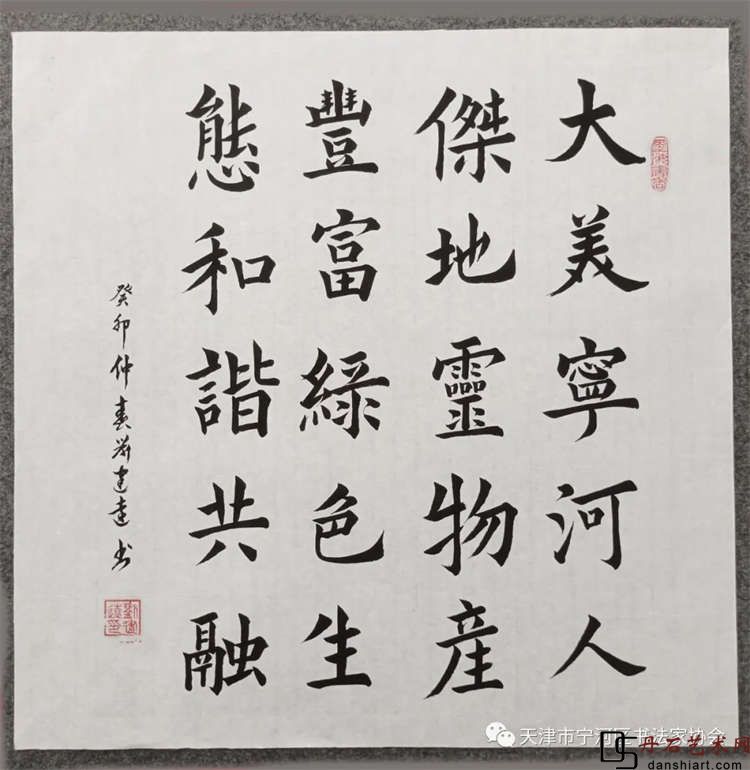 大美寧河人
傑地靈物產
豐富綠色生
態和諧共融
癸卯仲春劉建達书
天津市宁河区书法家协会
丹石艺术网
danshiart.com